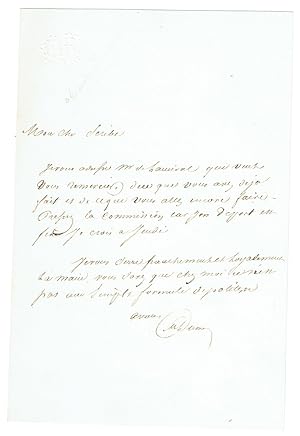 Mon cher Scribe
Je vous adresse Mr de qui veut
vous remercier de ce que vous avez déjà
fait et de ce que vous allez encore faire.
Pressez la commission car
je crois à Jeudi
Je vous serre franchement et loyalement
la main, vous que chez moi ce n'est
pas une simple formule de politesse
à vous